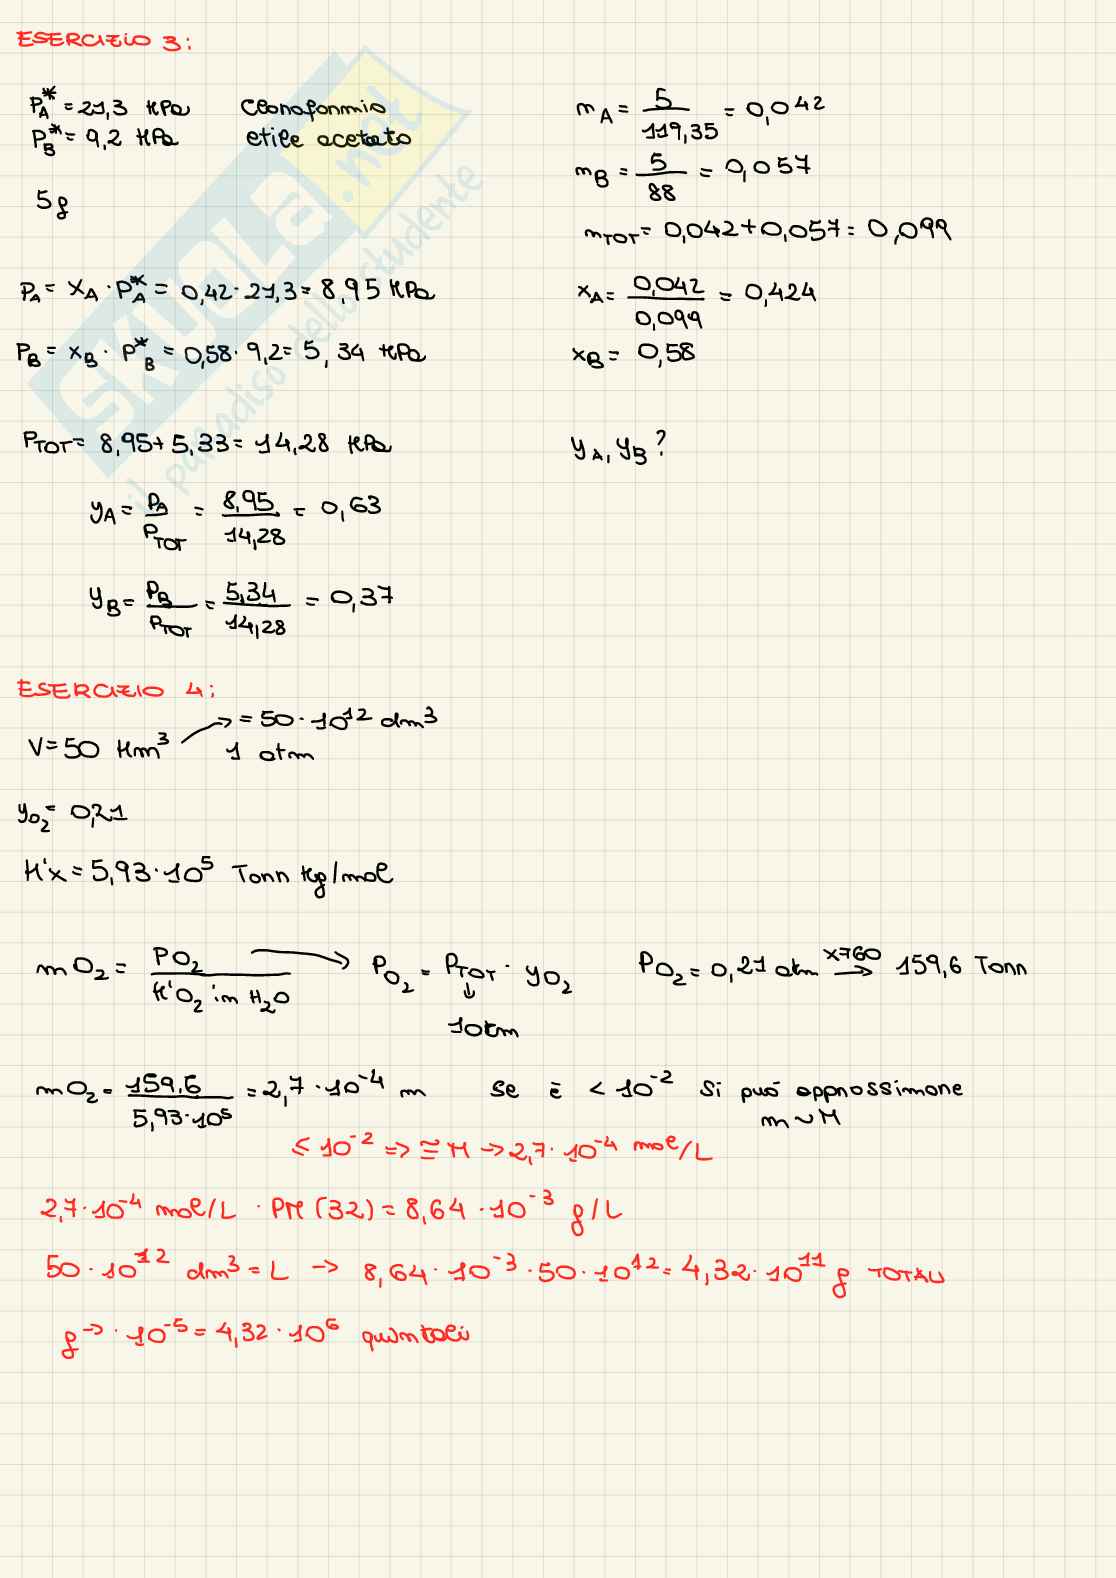 ESERCIZIO 3:
P*A = 21,3 KPa    Cloroformio
P*B = 9,2 KPa    etile acetato
5g
nA = 5/119,35 = 0,042
nB = 5/88 = 0,057
nTOT = 0,042+0,057 = 0,099
PA = XA · P*A = 0,42 · 21,3 = 8,95 KPa
xA = 0,042/0,099 = 0,424
PB = xB · P*B = 0,58 · 9,2 = 5,34 KPa
xB = 0,58
PTOT = 8,95+5,33 = 14,28 KPa
yA, yB ?
yA = PA/PTOT = 8,95/14,28 = 0,63
yB = PB/PTOT = 5,34/14,28 = 0,37
ESERCIZIO 4:
V = 50 Km³ → = 50 · 10¹² dm³
1 atm
yO₂ = 0,21
K'x = 5,93 · 10⁵ Torr Kg/mol
mO₂ = PO₂/K'O₂ in H₂O → PO₂ = PTOT · yO₂    PO₂ = 0,21 atm x760→ 159,6 Torr
↓
1atm
mO₂ = 159,6/5,93·10⁵ = 2,7 · 10⁻⁴ m    se è < 10⁻² si può approssimare
m ~ M
≤ 10⁻² => ≅ M → 2,7 · 10⁻⁴ mol/L
2,7 · 10⁻⁴ mol/L · PM (32) = 8,64 · 10⁻³ g/L
50 · 10¹² dm³ = L → 8,64 · 10⁻³ · 50 · 10¹² = 4,32 · 10¹¹ g TOTALI
g → · 10⁻⁵ = 4,32 · 10⁶ quintali
SKUOLA.net
il paradiso dello studente